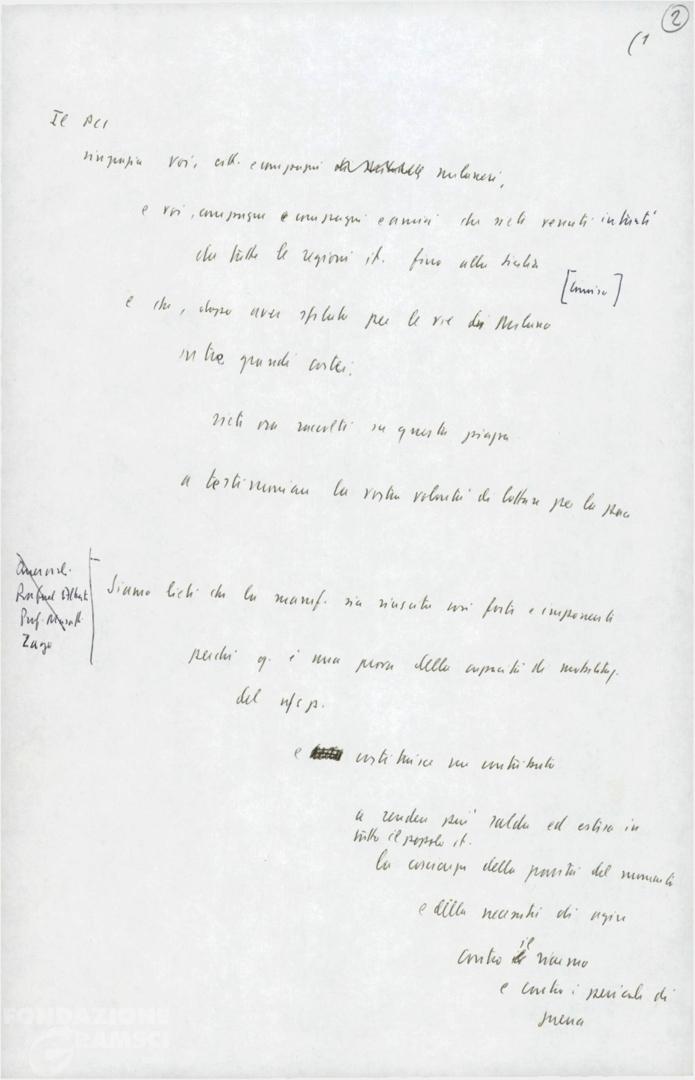 2
(1
Il PCI
ringrazia voi, citt. e compagni milanesi,
e voi, compagne e compagni e amici che siete venuti
da tutte le regioni it. fino alla Sicilia
[Comiso]
e che, dopo aver sfilato per le vie di Milano
in tre grandi cortei,
siete ora raccolti in questa piazza
a testimoniare la vostra volontà di lottare per la pace
Rafael Alberti
Prof.
Zago
Siamo lieti che la manif. sia riuscita così forte e imponente
perché q. è una prova della capacità di mobilitaz.
del n/s p.
e costituisce un contributo
a rendere più salda ed estesa in
tutto il popolo it.
la coscienza della gravità del momento
e della necessità di agire
contro il riarmo
e contro i pericoli di
guerra
FONDAZIONE
GRAMSCI